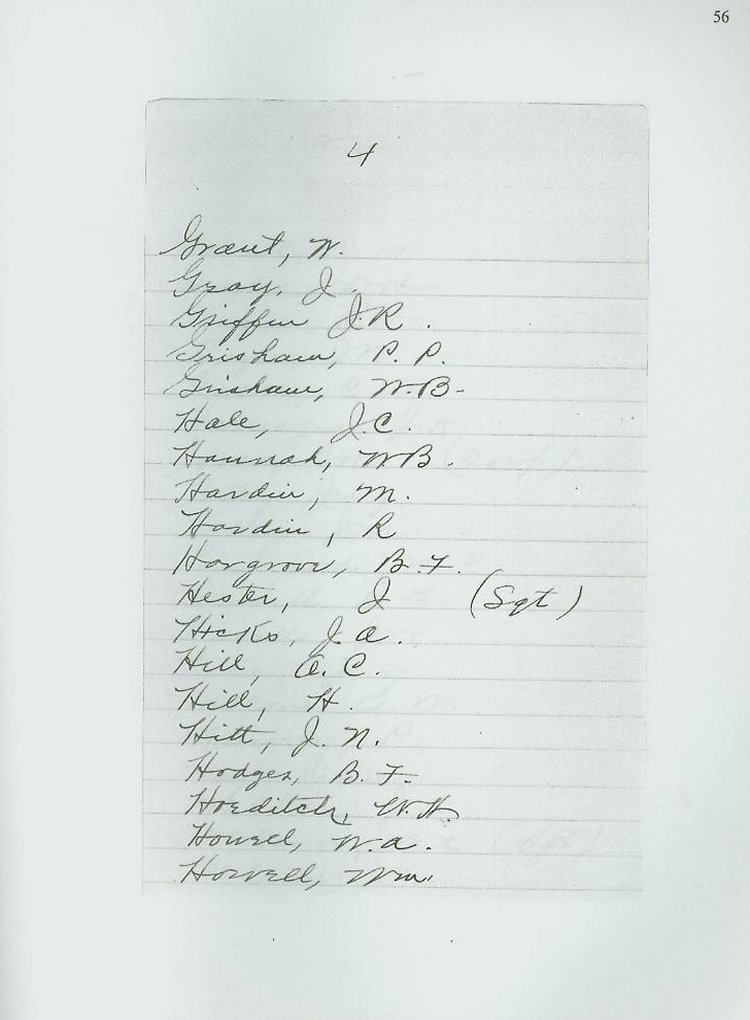 56
4
Grant, W.
Gray, J.
Griffin J.R.
Grisham, P. P.
Grisham, W.B.
Hale, J.C.
Hannah, W B.
Hardin, M.
Hardin, R
Hargrove, B.F.
Hester, J (Sgt)
Hicks, J.A.
Hill, A. C.
Hill, H.
Hitt, J. N.
Hodges, B. F.
W.H.
Howell, W.A.
Howell, Wm.